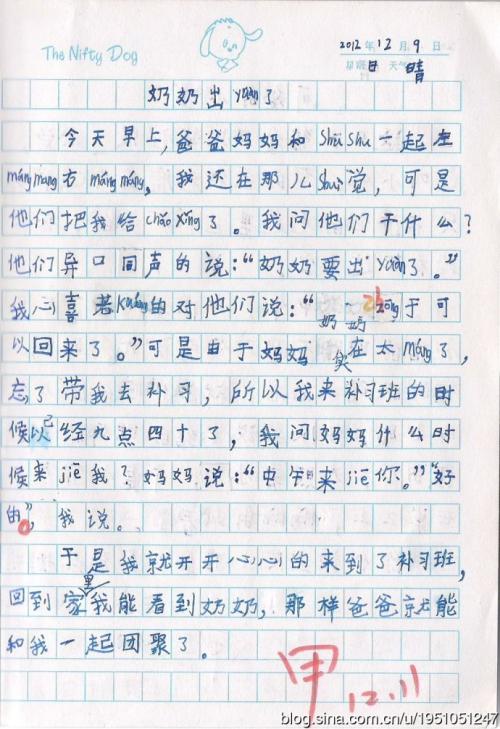 The Nifty Dog
2012年12月9日
星期日 天气晴
奶奶出yuàn了
今天早上,爸爸妈妈和Shū Shu一起左
máng mang右máng máng,我还在那儿Shuì觉,可是
他们把我给chǎo xǐng了。我问他们干什么?
他们异口同声的说:“奶奶要出yuàn了。”
我心喜若kuáng的对他们说:“奶奶zhōng于可
以回来了。”可是由于妈妈实在太máng了,
忘了带我去补习,所以我来补习班的时
候以已经九点四十了,我问妈妈什么时
候来jiē我?妈妈说:“中午来jiē你。”“好
的”,我说。
于是我就开开心心的来到了补习班,
回到家里我能看到奶奶,那样爸爸就能
和我一起团聚了。
甲
12.11
blog.sina.com.cn/u/1951051247